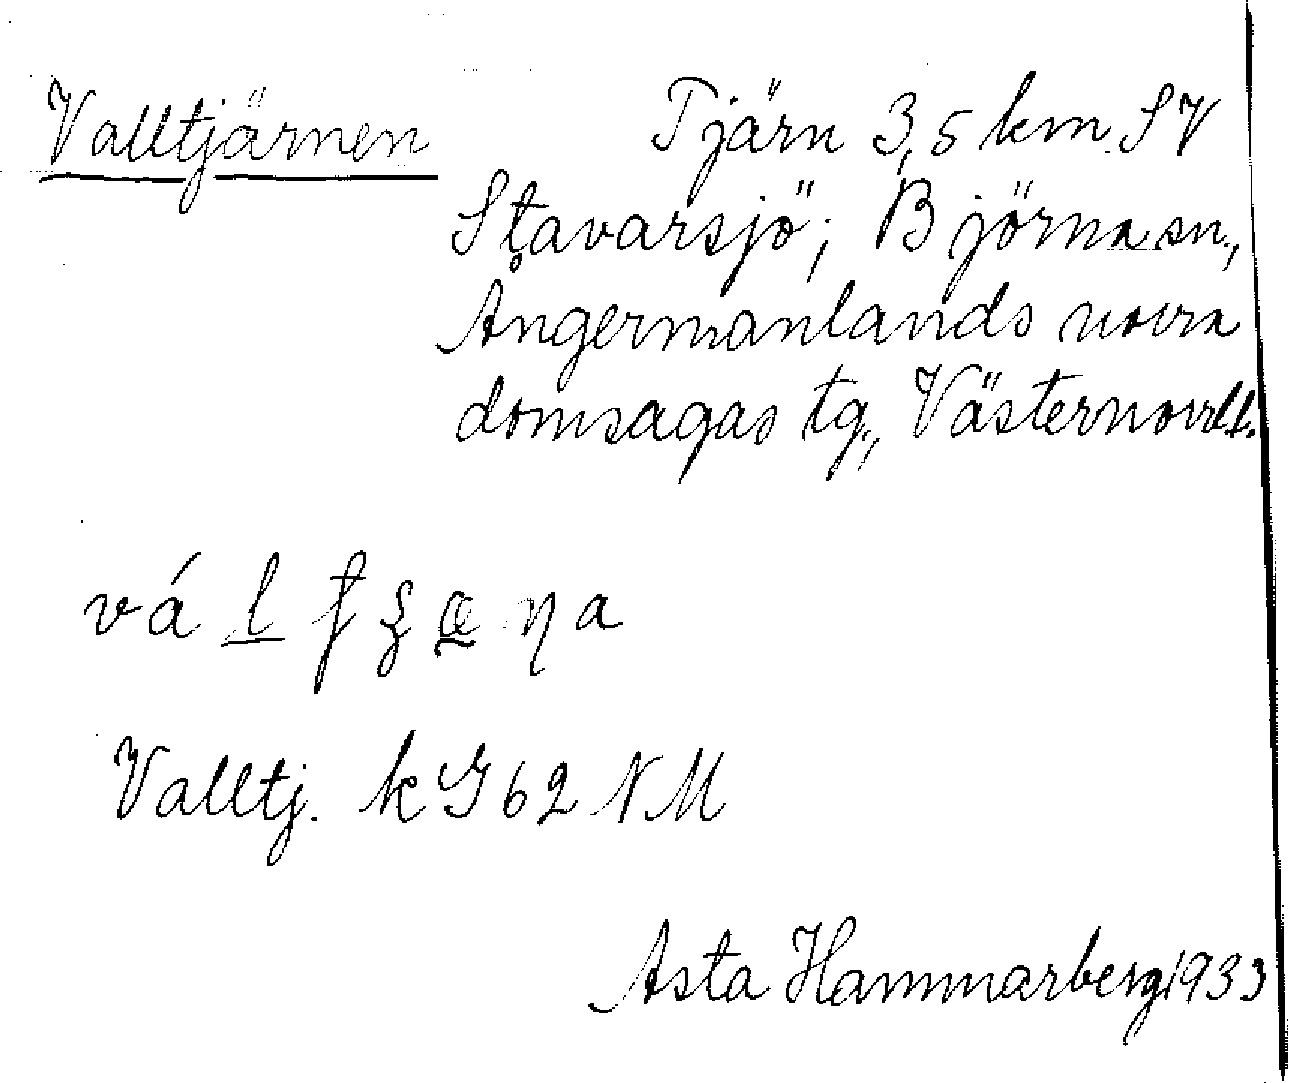 Valltjärnen Tjärn 3,5 km. SV
Stavarsjö; Björna sn,
Ångermanlands norra
domsagas tg., Västernorrl.
Valltj. k G 62 NM
Asta Hammarberg 1933